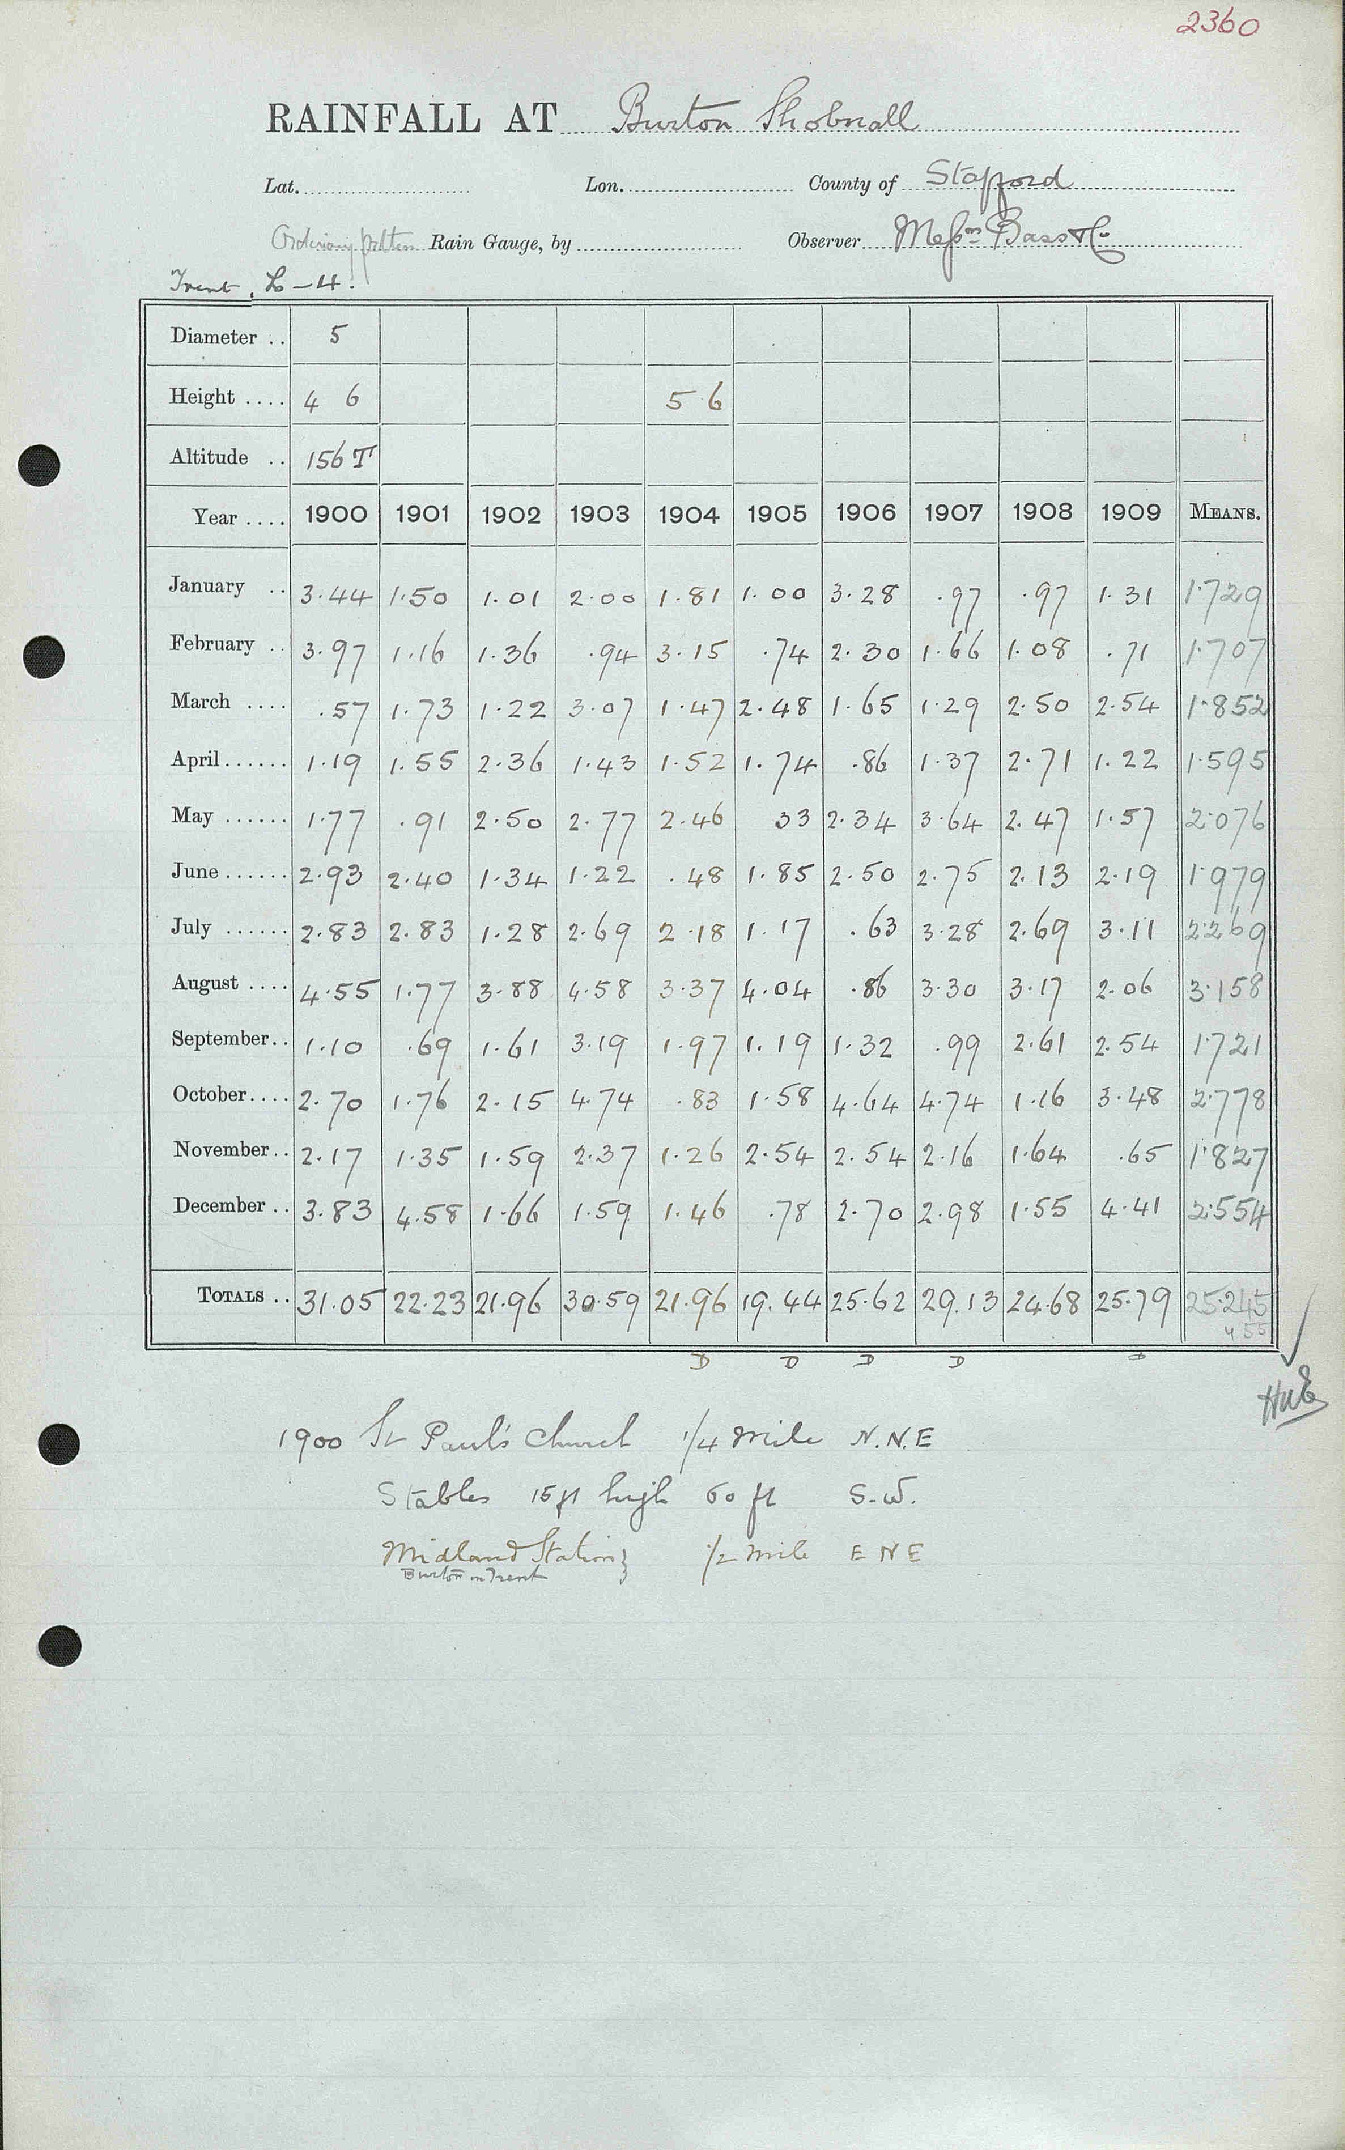 2360
RAINFALL AT Burton Shobnall
Lat. Lon. County of Stafford
Ordinary pattern Rain Gauge, by Observer Messrs Bass & Co
Trent. L-4.
Diameter .. 5
Height .... 4 6 5 6
Altitude .. 156 T
Year .... 1900 1901 1902 1903 1904 1905 1906 1907 1908 1909 MEANS.
January .. 3.44 1.50 1.01 2.00 1.81 1.00 3.28 .97 .97 1.31 1.729
February .. 3.97 1.16 1.36 .94 3.15 .74 2.30 1.66 1.08 .71 1.707
March .... .57 1.73 1.22 3.07 1.47 2.48 1.65 1.29 2.50 2.54 1.852
April ...... 1.19 1.55 2.36 1.43 1.52 1.74 .86 1.37 2.71 1.22 1.595
May ...... 1.77 .91 2.50 2.77 2.46 33 2.34 3.64 2.47 1.57 2.076
June ...... 2.93 2.40 1.34 1.22 .48 1.85 2.50 2.75 2.13 2.19 1.979
July ...... 2.83 2.83 1.28 2.69 2.18 1.17 .63 3.28 2.69 3.11 2.269
August .... 4.55 1.77 3.88 4.58 3.37 4.04 .86 3.30 3.17 2.06 3.158
September .. 1.10 .69 1.61 3.19 1.97 1.19 1.32 .99 2.61 2.54 1.721
October .... 2.70 1.76 2.15 4.74 .83 1.58 4.64 4.74 1.16 3.48 2.778
November .. 2.17 1.35 1.59 2.37 1.26 2.54 2.54 2.16 1.64 .65 1.827
December .. 3.83 4.58 1.66 1.59 1.46 .78 2.70 2.98 1.55 4.41 2.554
TOTALS .. 31.05 22.23 21.96 30.59 21.96 19.44 25.62 29.13 24.68 25.79 25.245
D D D D
1900 St Paul's Church 1/4 mile N.N.E
Stables 15 ft high 60 ft S.W.
Midland Station } 1/2 mile E N E
Burton on Trent